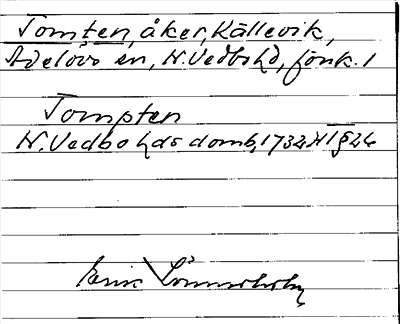 Tomten, åker, Källevik,
Adelövs sn, N. Vedbo hd, Jönk. l
Tompten
N. Vedbo hds domb, 1732 Ht § 26
Erik Lönnerholm